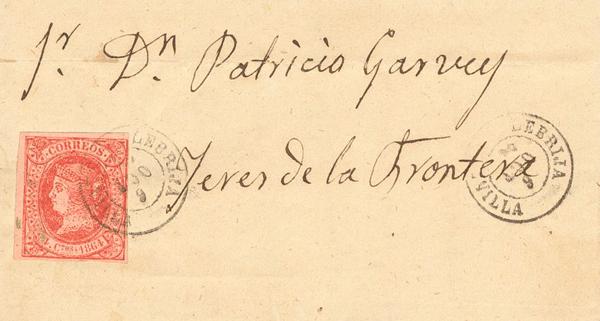 Sr. Dn Patricio Garvey
Jeres de la Frontera
CORREOS
4 Ctos 1864
LEBRIJA
LEBRIJA
VILLA